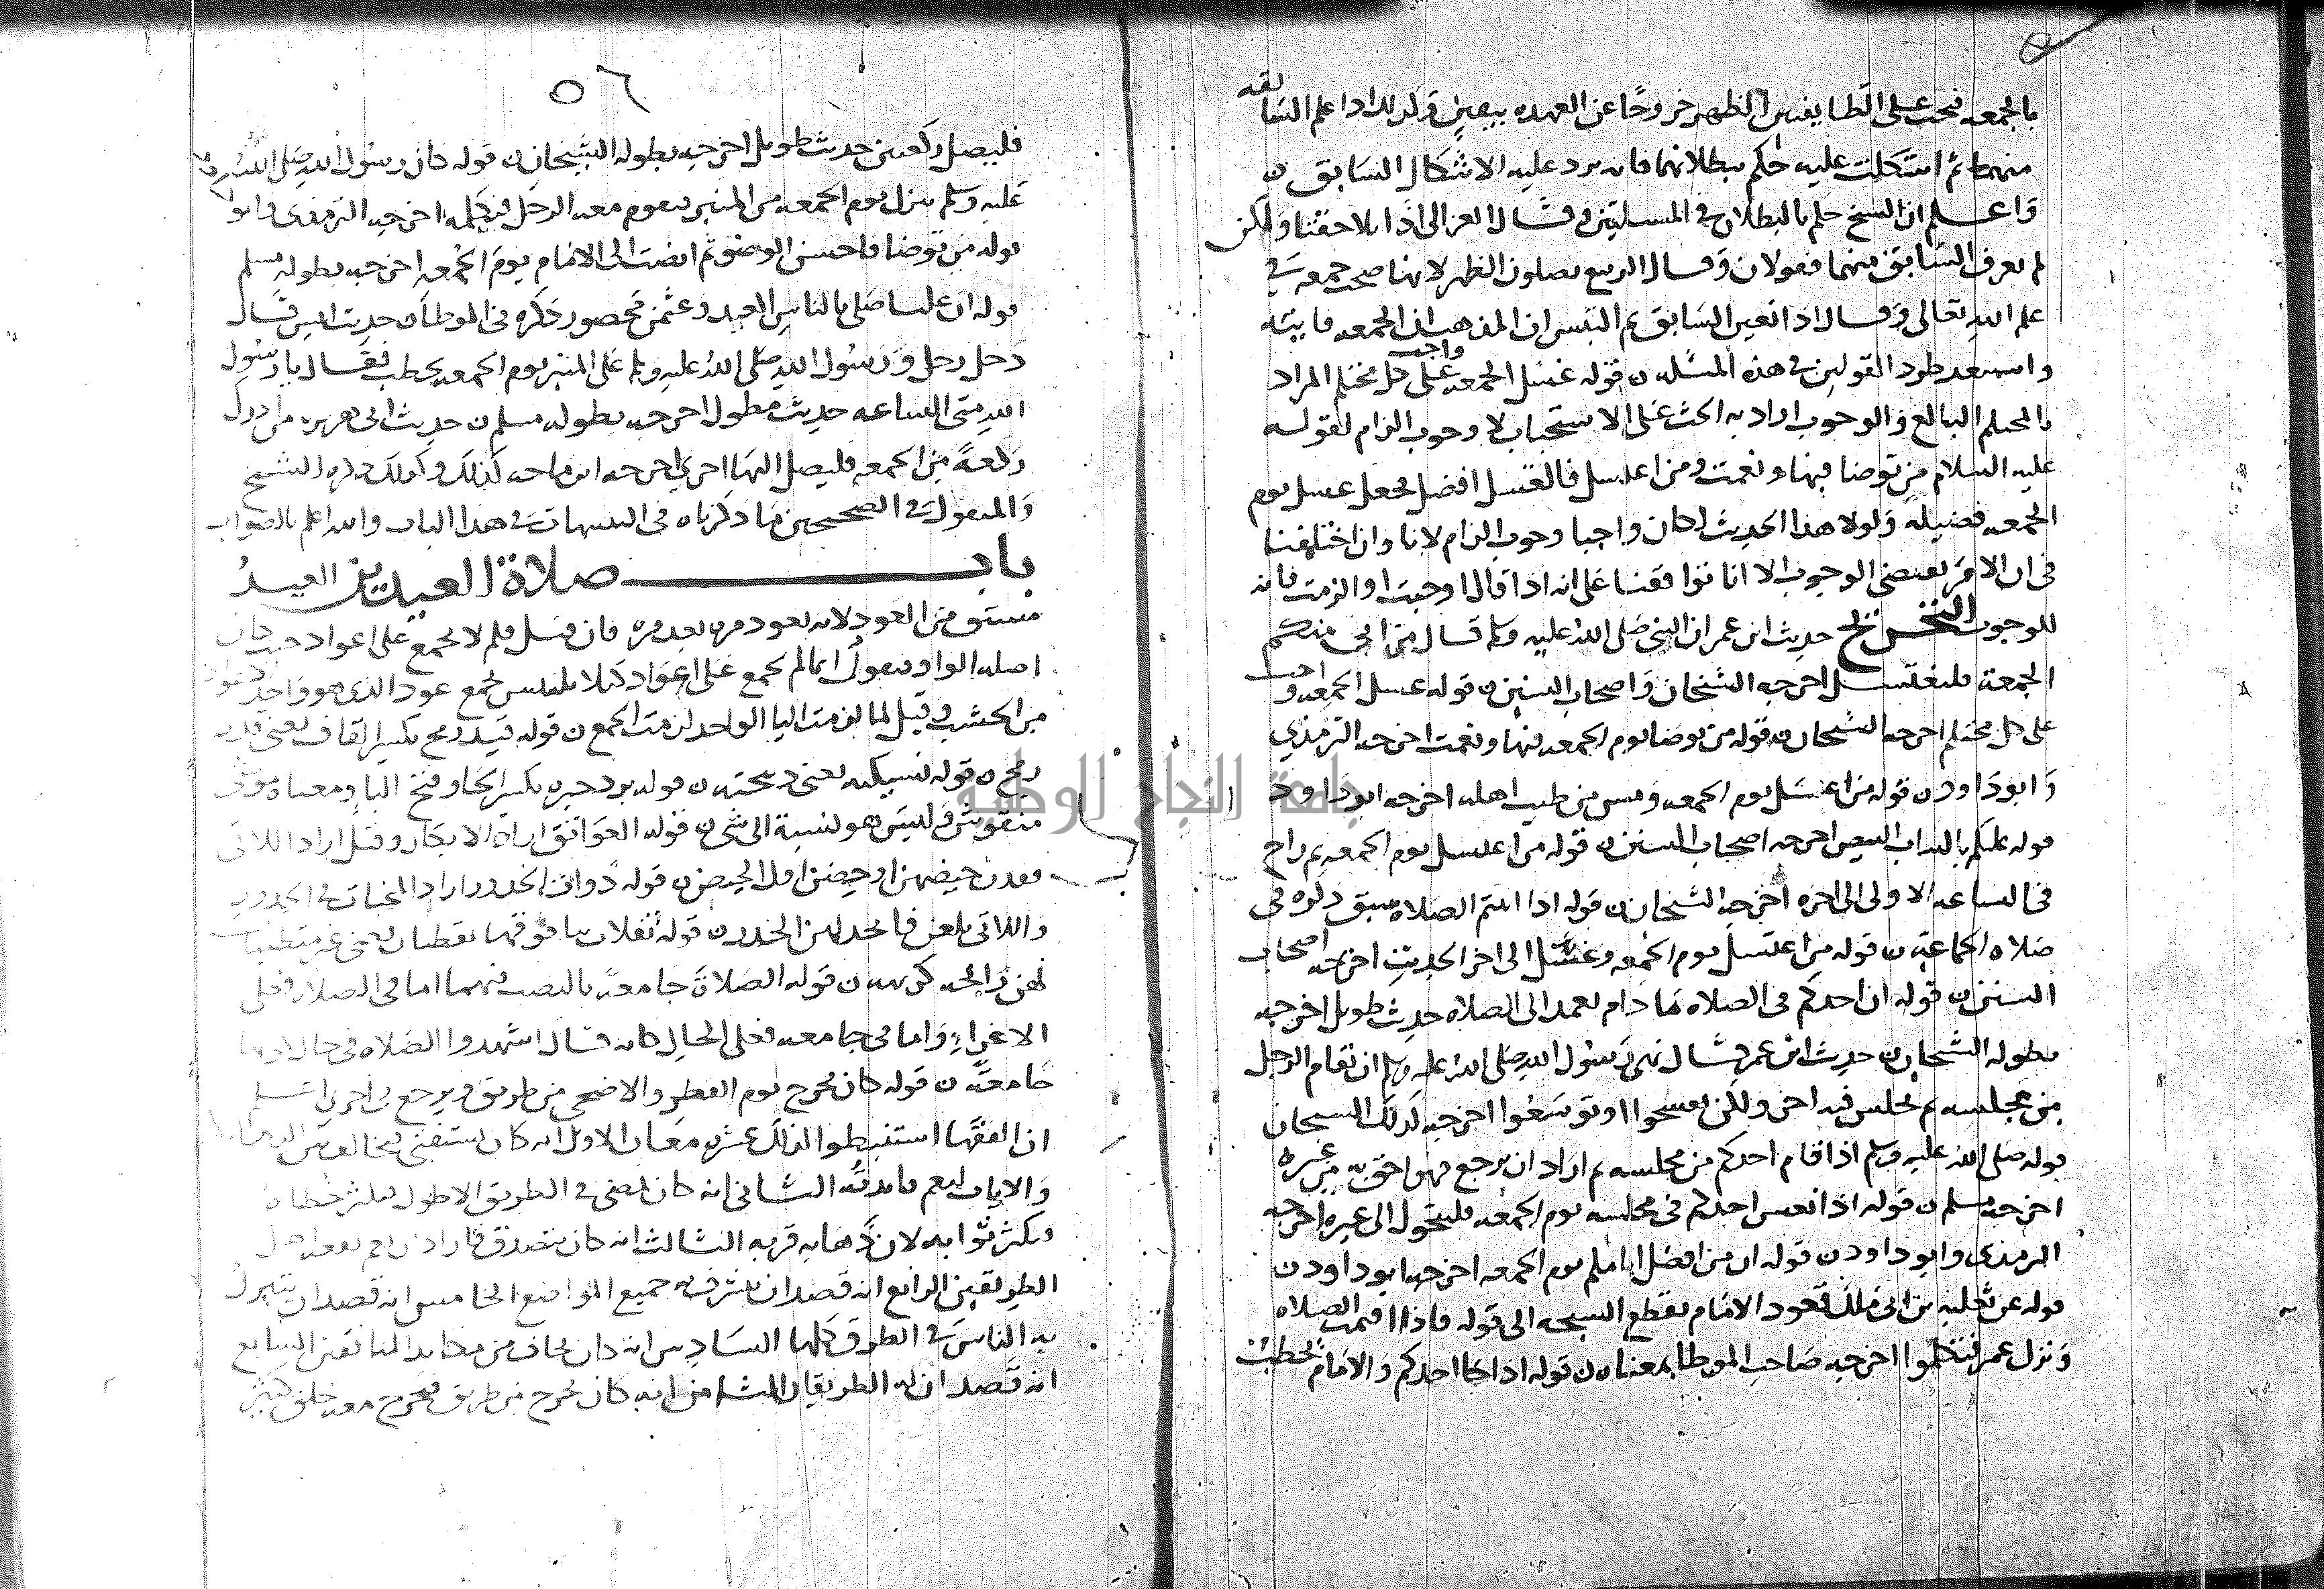 بالجمعه فيجب على الطايفتين الظهر خروجًا عن العهده بيقين وكذلك اذا علم السابقه
منهما ثم اشكلت عليه حكم ببطلانهما فانه يرد عليه الاشكال السابق ن
واعلم ان الشيخ حكم بالبطلان في المسلتين وقال الغزالي اذا تلاحقتا ولكن
لم يعرف السابق منهما فقولان وقال الربيع يصلون الظهر لانها صحت جمعه في
علم الله تعالى وقال اذا تعين السابق ثم التبس ان المذهب ان الجمعه فايته
واستبعد طرد القولين في هذه المسله ن قوله غسل الجمعه واجب على كل محتلم المراد
بالمحتلم البالغ والوجوب اراد به الحث على الاستحباب لا وجوب الزام لقوله
عليه السلام من توضا فبها ونعمت ومن اغتسل فالغسل افضل فجعل غسل يوم
الجمعه فضيله ولولا هذا الحديث لكان واجبا وجوب الزام لانا وان اختلفنا
في ان الامر يقتضي الوجوب الا انا توافقنا على انه اذا قال اوجبت او الزمت فانه
للوجوب التخريج حديث ابن عمر ان النبي صلى الله عليه وسلم قال من اتى منكم
الجمعة فليغتسل اخرجه الشيخان واصحاب السنن ن قوله غسل الجمعه واجب
على كل محتلم اخرجه الشيخان ن قوله من توضا يوم الجمعه فبها ونعمت اخرجه الترمذي
وابو داود ن قوله من اغتسل يوم الجمعه ومس من طيب اهله اخرجه ابو داود
قوله عليكم بالثياب البيض اخرجه اصحاب السنن ن قوله من اغتسل يوم الجمعه ثم راح
في الساعه الاولى الى اخره اخرجه الشيخان ن قوله اذا اتيتم الصلاة سبق ذكره في
صلاه الجماعة ن قوله من اغتسل يوم الجمعه وغسل الى اخر الحديث اخرجه اصحاب
السنن ن قوله ان احدكم في الصلاه ما دام يعمد الى الصلاه حديث طويل اخرجه
بطوله الشيخان ن حديث ابن عمر قال نهى رسول الله صلى الله عليه وسلم ان يقام الرجل
من مجلسه ثم يجلس فيه اخر ولكن تفسحوا او توسعوا اخرجه كذلك الشيخان
قوله صلى الله عليه وسلم اذا قام احدكم من مجلسه ثم اراد ان يرجع فهو احق به من غيره
اخرجه مسلم ن قوله اذا نعس احدكم في مجلسه يوم الجمعه فليتحول الى غيره اخرجه
الترمذي وابو داود ن قوله ان من افضل ايامكم يوم الجمعه اخرجه ابو داود ن
قوله عن ثعلبه بن ابي ملك قعود الامام يقطع السبحه الى قوله فاذا اقيمت الصلاه
ونزل عمر فتكلموا اخرجه صاحب الموطا بمعناه ن قوله اذا جا احدكم والامام يخطب
٥٦
فليصل ركعتين حديث طويل اخرجه بطوله الشيخان ن قوله كان رسول الله صلى الله
عليه وسلم ينزل يوم الجمعه من المنبر فيقوم معه الرجل فيكلمه اخرجه الترمذي وابو
قوله من توضا فاحسن الوضو ثم انصت الى الامام يوم الجمعه اخرجه بطوله مسلم
قوله ان عليا صلى بالناس العيد وعثمن محصور ذكره في الموطا ن حديث انس قال
دخل رجل ورسول الله صلى الله عليه وسلم على المنبر يوم الجمعه يخطب فقال يا رسول
الله متى الساعه حديث مطول اخرجه بطوله مسلم ن حديث ابي هريره من ادرك
ركعةً من الجمعه فليصل اليها اخرى اخرجه ابن ماجه كذلك وكذلك ذكره الشيخ
والمنقول في الصحيحين ما ذكرناه في التنبيهات في هذا الباب والله اعلم بالصواب
باب صلاة العيدين العيدُ
مشتق من العود لانه يعود مره بعد مره فان قيل فلم لا يجمع على اعواد حيث كان
اصله الواو فيقول انما لم يجمع على اعواد كيلا يلتبس بجمع عود الذي هو واحد
من الخشب وقيل لما لزمت اليا الواحد لزمت الجمع ن قوله قيد رمح بكسر القاف يعني قدر
رمح ن قوله نسيكته يعني ذبيحته ن قوله برد حبره بكسر الحا وفتح البا ومعناه
منقوش وليس هو نسبة الى شي ن قوله العواتق اراد الابكار وقيل اراد اللاتي
حيضهن او حيضن اول الحيض ن قوله ذوات الخدور اراد المخبات في الخدور
واللاتي بلغن فاتخذ لهن الخدر ن قوله تفلات بتا فوقها نقطتان يعني غير متطيبات
لهن رايحه كريهه ن قوله الصلاة جامعةً بالنصب فيهما اما في الصلاه فعلى
الاغراء واما في جامعه فعلى الحال كانه قال اشهدوا الصلاه في حال
جامعةً ن قوله كان يخرج يوم الفطر والاضحى من طريق ويرجع في اخرى اعلم
ان الفقها استنبطوا لذلك عشره معان الاول انه كان يستفتى فيخالف بين الذهاب
والاياب ليعم فايدتُه الثاني انه كان يمضي في الطريق الاطول فيكثر خطاه
ويكثر ثوابه لان ذهابه قربه الثالث انه كان يتصدق فاراد ان يعم بصدقته اهل
الطريقين الرابع انه قصد ان يشرف به جميع المواضع الخامس انه قصد ان يتبرك
به الناس في الطرق كلها السادس انه كان يخاف من مكايد المنافقين السابع
انه قصد ان له الطريقان الثامن انه كان يخرج من طريق فيخرج معه خلق كثير
جامعة النجاح الوطنية